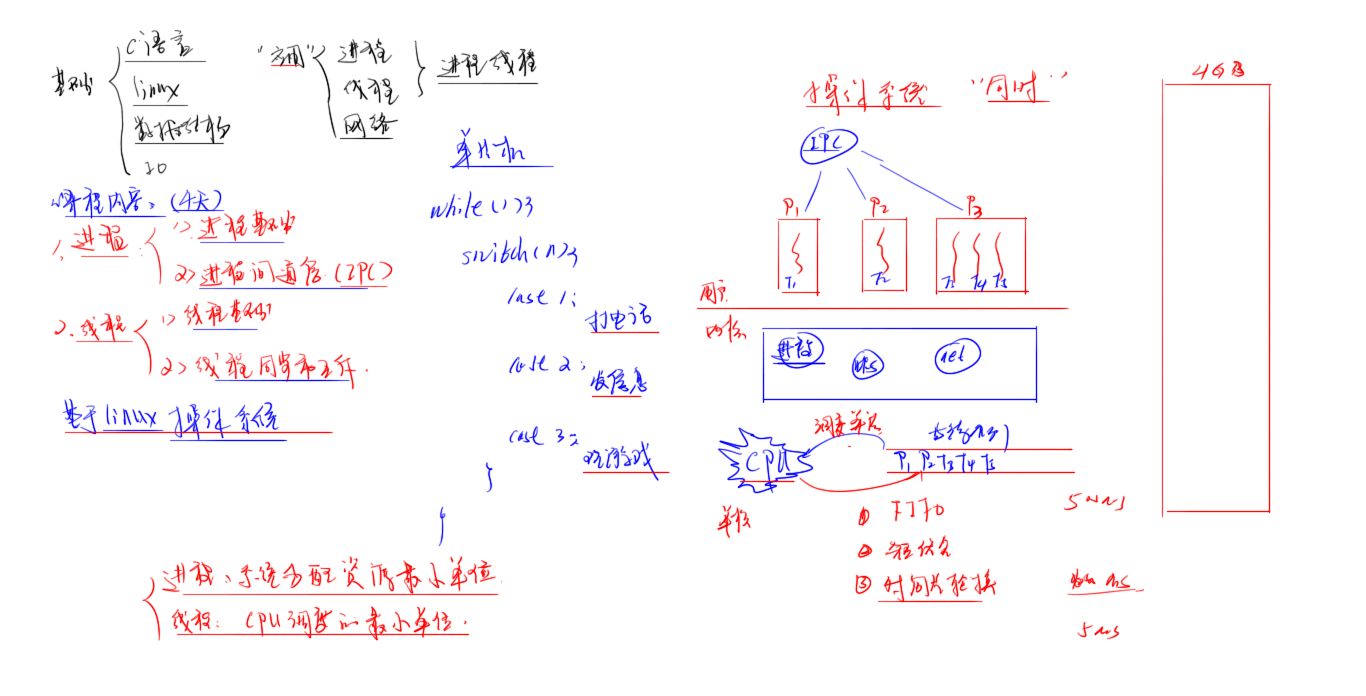 基础
C语言
linux
数据结构
IO
"应用"
进程
线程
网络
进程线程
课程内容：(4天)
1、进程：
1> 进程基础
2> 进程间通信 (IPC)
2、线程
1> 线程基础
2> 线程同步和互斥.
基于linux 操作系统
单片机
while(1){
switch(n){
case 1:
打电话
case 2:
发信息
case 3:
玩游戏
}
}
进程：系统分配资源最小单位
线程： CPU调度的最小单位.
操作系统 "同时"
IPC
P1 P2 P3
T1 T2 T3 T4 T5
用户
内核
进程
net
CPU
调度单元
P1 P2 T3 T4 T5
单核
① FIFO
② 短优先
③ 时间片轮换
5ms
4GB